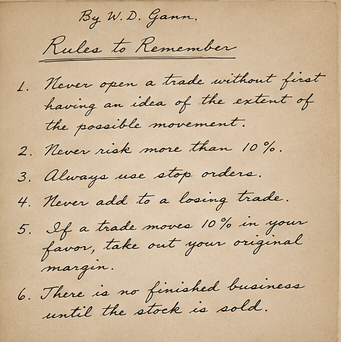 By W. D. Gann.
Rules to Remember
1. Never open a trade without first
having an idea of the extent of
the possible movement.
2. Never risk more than 10%.
3. Always use stop orders.
4. Never add to a losing trade.
5. If a trade moves 10% in your
favor, take out your original
margin.
6. There is no finished business
until the stock is sold.